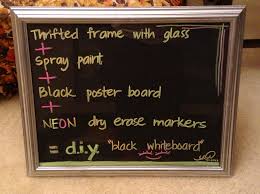 Thrifted frame with glass
+
Spray paint
+
Black poster board
+
NEON dry erase markers
= d.i.y. "black whiteboard"